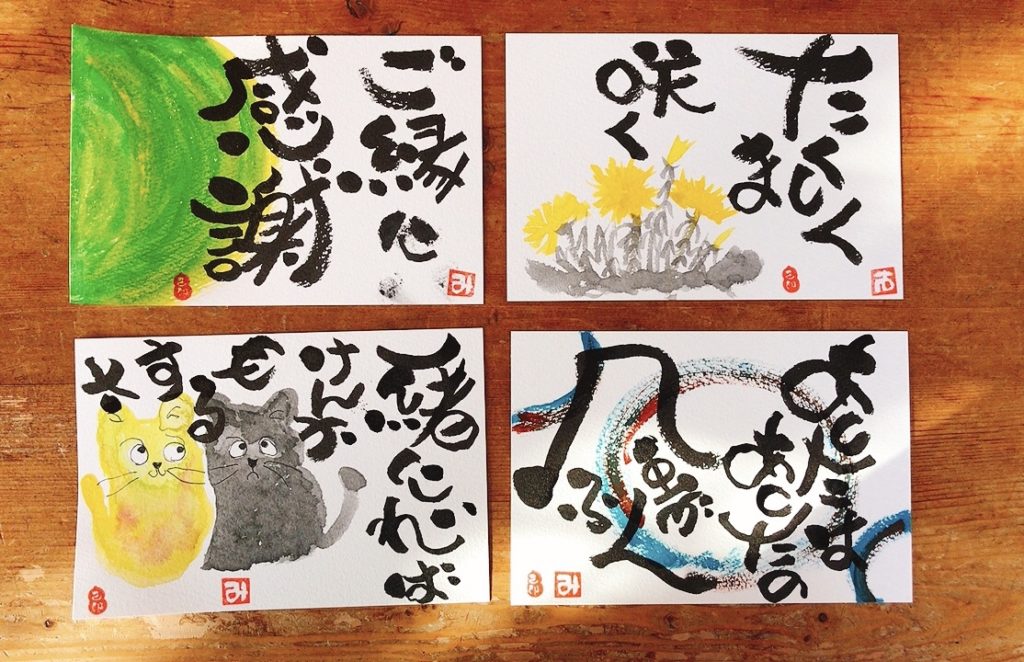 ご縁に
感謝
み
たくましく
咲く
一緒にいれば
けんか
も
する
さ
み
あしたは
あしたの
風が
ふく
み